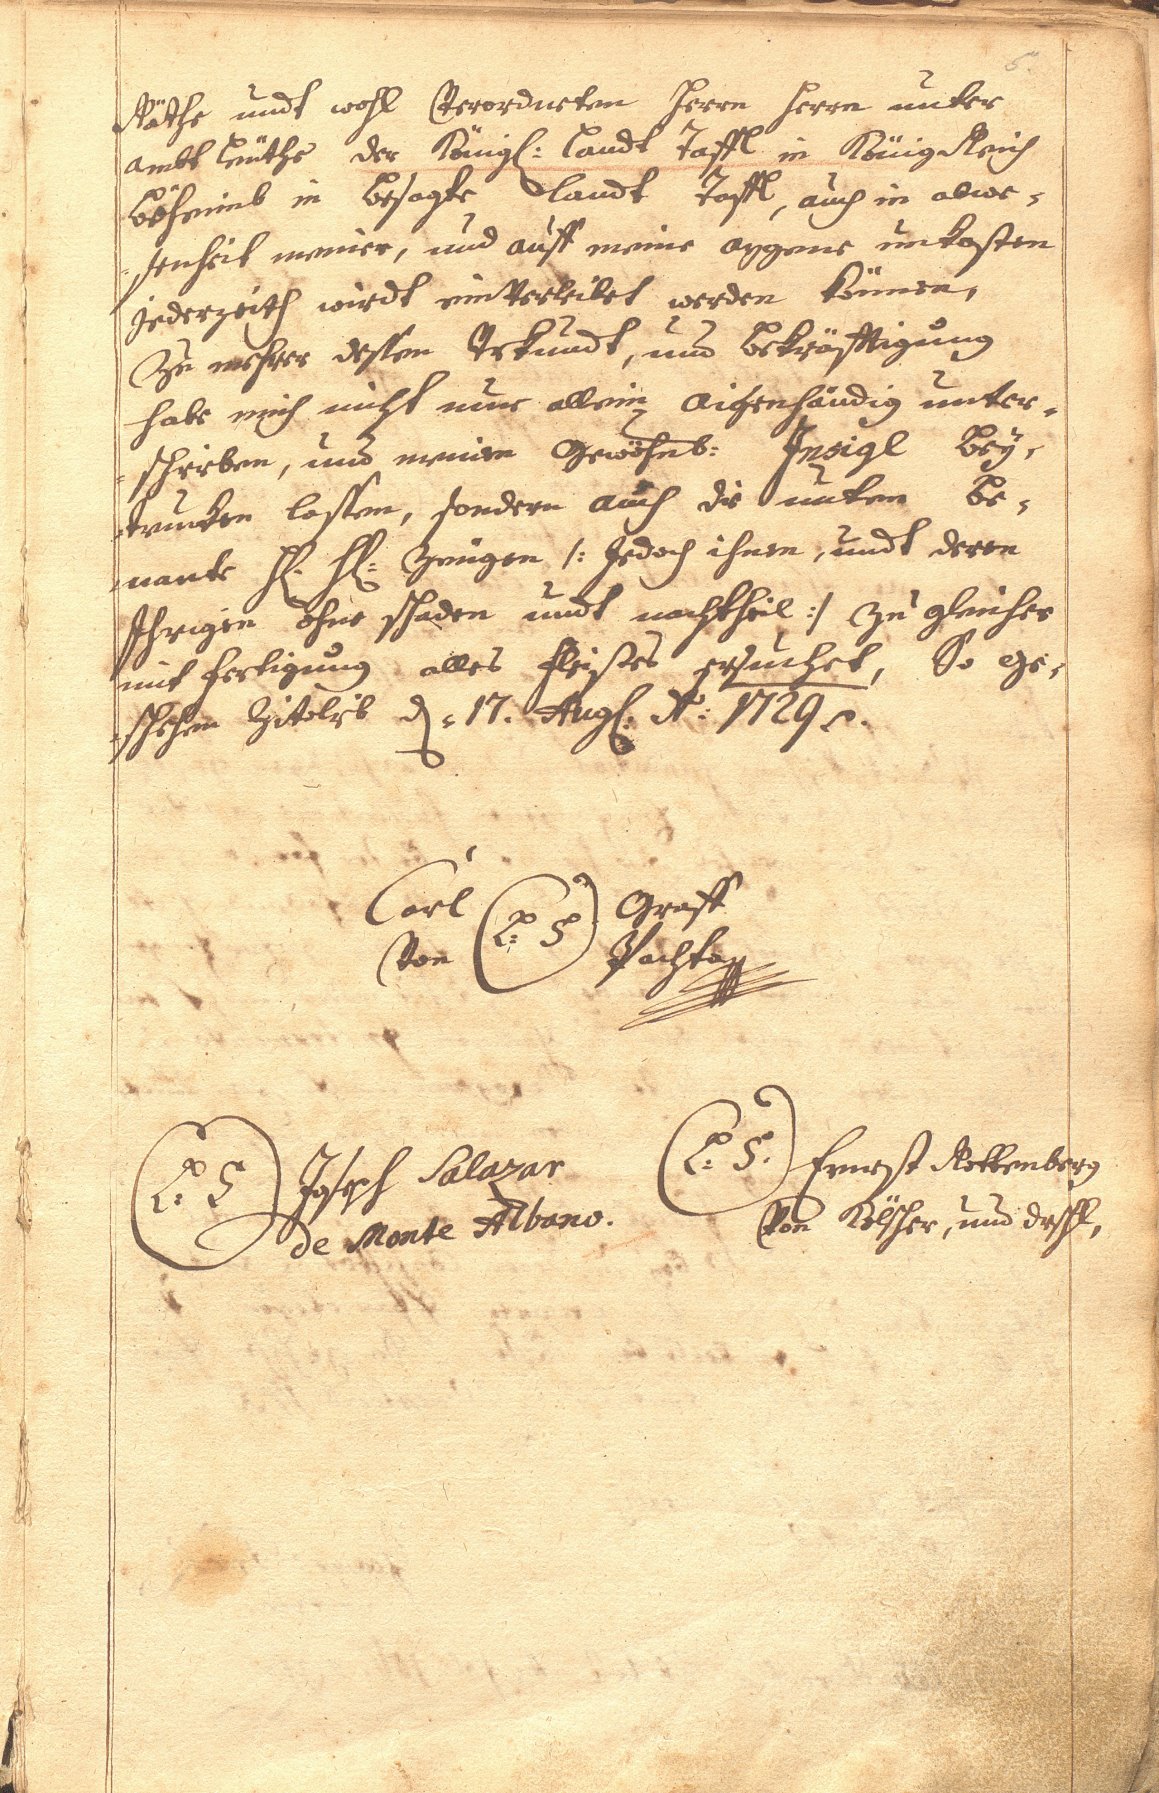 6.
Räthe undt wohl Verordneten Herrn Herrn unter
ambt Leüthe der Königl: Landt Taffl in König Reich
Böheimb in besagte Landt Taffl, auch in abwe-
senheit meiner, und auff meine aygene unkosten
jederzeith wirdt einverleibet werden können,
Zu mehrer dessen Urkundt, und bekräfftigung
habe mich nicht nur allein aigenhändig unter-
schrieben, und meinen Gewöhnl: Insigl bey-
trucken lassen, sondern auch die unten be-
nante H. H: Zeügen /: Jedoch ihnen, undt deren
Ihrigen ohne schaden undt nachtheil :/ zu gleicher
mit fertigung alles fleisses ersuchet, So ge-
schehen Zitolib d: 17. Aug: Ao: 1729
Carl L: S Graff
Von Pachta
L: S Joseph Salazar
de Monte Albano.
L: S. Ernest Rottenberg
Von